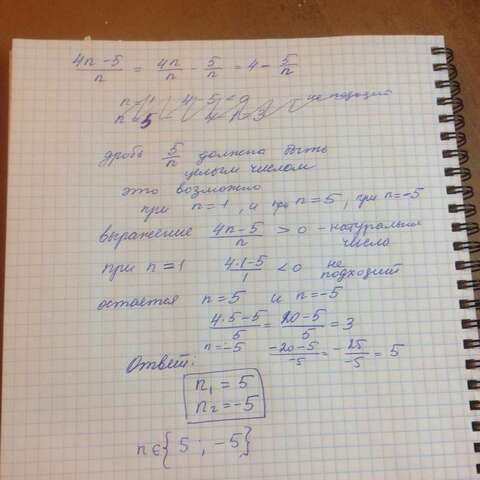 (4n-5)/n = 4n/n - 5/n = 4 - 5/n
дробь 5/n должна быть
целым числом
это возможно
при n=1, и при n=5, при n=-5
выражение (4n-5)/n > 0 - натуральные
числа
при n=1 (4·1-5)/1 < 0 не
подходит
остается n=5 и n=-5
(4·5-5)/5 = (20-5)/5 = 3
n=-5 (-20-5)/-5 = -25/-5 = 5
Ответ:
n₁ = 5
n₂ = -5
n∈{5; -5}